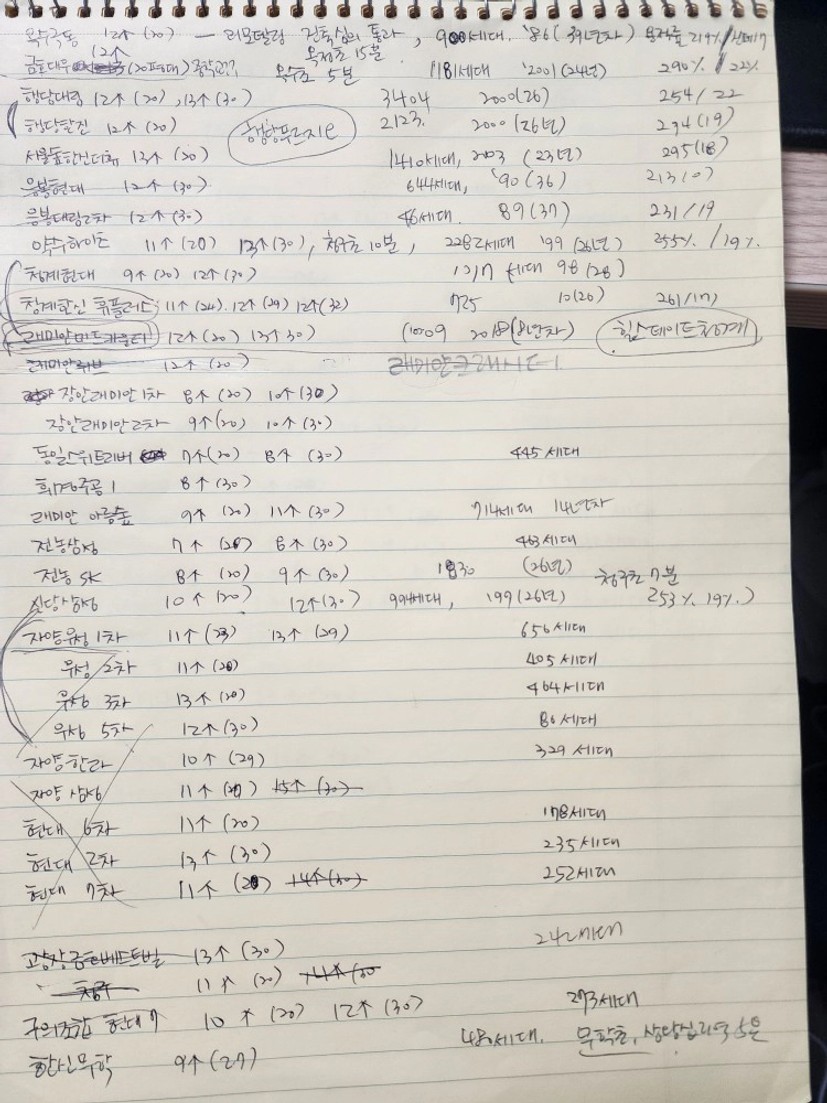 옥수극동 12↑(20) — 리모델링 건축심의 통과, 900세대. '86(39년차) 용적률 219%/건폐
12↑ 옥정초 15분
금호대우 (20평대) 중학교?? 옥수초 5분 1181세대 '2001(24년) 290% / 22%
행당대림 12↑(20), 13↑(30) 3404 2000(26) 254/22
행당한진 12↑(20) 행당푸르지오 2123. 2000(26년) 294(19)
서울숲한신더휴 13↑(20) 1410세대, 2003 (23년) 295(18)
응봉현대 12↑(30) 644세대, '90(36) 213/
응봉대림2차 12↑(30) 46세대. 89(37) 231/19
약수하이츠 11↑(20) 13↑(30), 청구초10분, 2282세대 '99(26년) 255% / 19%
청계현대 9↑(20) 12↑(30) 1217세대 98(28)
청계한신휴플러스 11↑(24). 12↑(29) 12↑(32) 725 10(26) 261/17)
래미안미드카운티 12↑(20) 13↑30) (1009 2018(8년차) 힐스테이트청계
래미안허브 12↑(20) 래미안크레시티
장안래미안1차 8↑(20) 10↑(30)
장안래미안2차 9↑(20) 10↑(30)
동일스위트리버 7↑(20) 8↑(30) 445세대
휘경주공1 8↑(30)
래미안 아름숲 9↑(20) 11↑(30) 714세대 14년차
전농삼성 7↑(20) 8↑(30) 463세대
전농SK 8↑(20) 9↑(30) 1830 (26년) 청구초 7분
신당삼성 10↑(20) 12↑(30) 994세대, 199(26년) 253%. 19%.)
자양우성1차 11↑(23) 13↑(29) 656세대
우성2차 11↑(20) 405세대
우성 3차 13↑(20) 464세대
우성 5차 12↑(30) 86세대
자양한라 10↑(29) 329세대
자양삼성 11↑(20) 15↑(30)
현대 6차 11↑(20) 178세대
현대 2차 13↑(30) 235세대
현대 7차 11↑(20) 14↑(30) 252세대
광장금호베스트빌 13↑(30) 242세대
청구 11↑(20) 14↑(30
구의조합 현대7 10↑(20) 12↑(30) 273세대
한신무학 9↑(27) 480세대. 무학초, 상왕십리역 5분